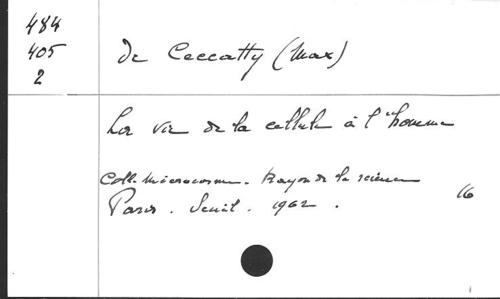 484
405
2
de Ceccatty (Max)
La vie de la cellule à l'homme
Coll. Microcosme. Rayon de la science
16
Paris. Seuil. 1962.